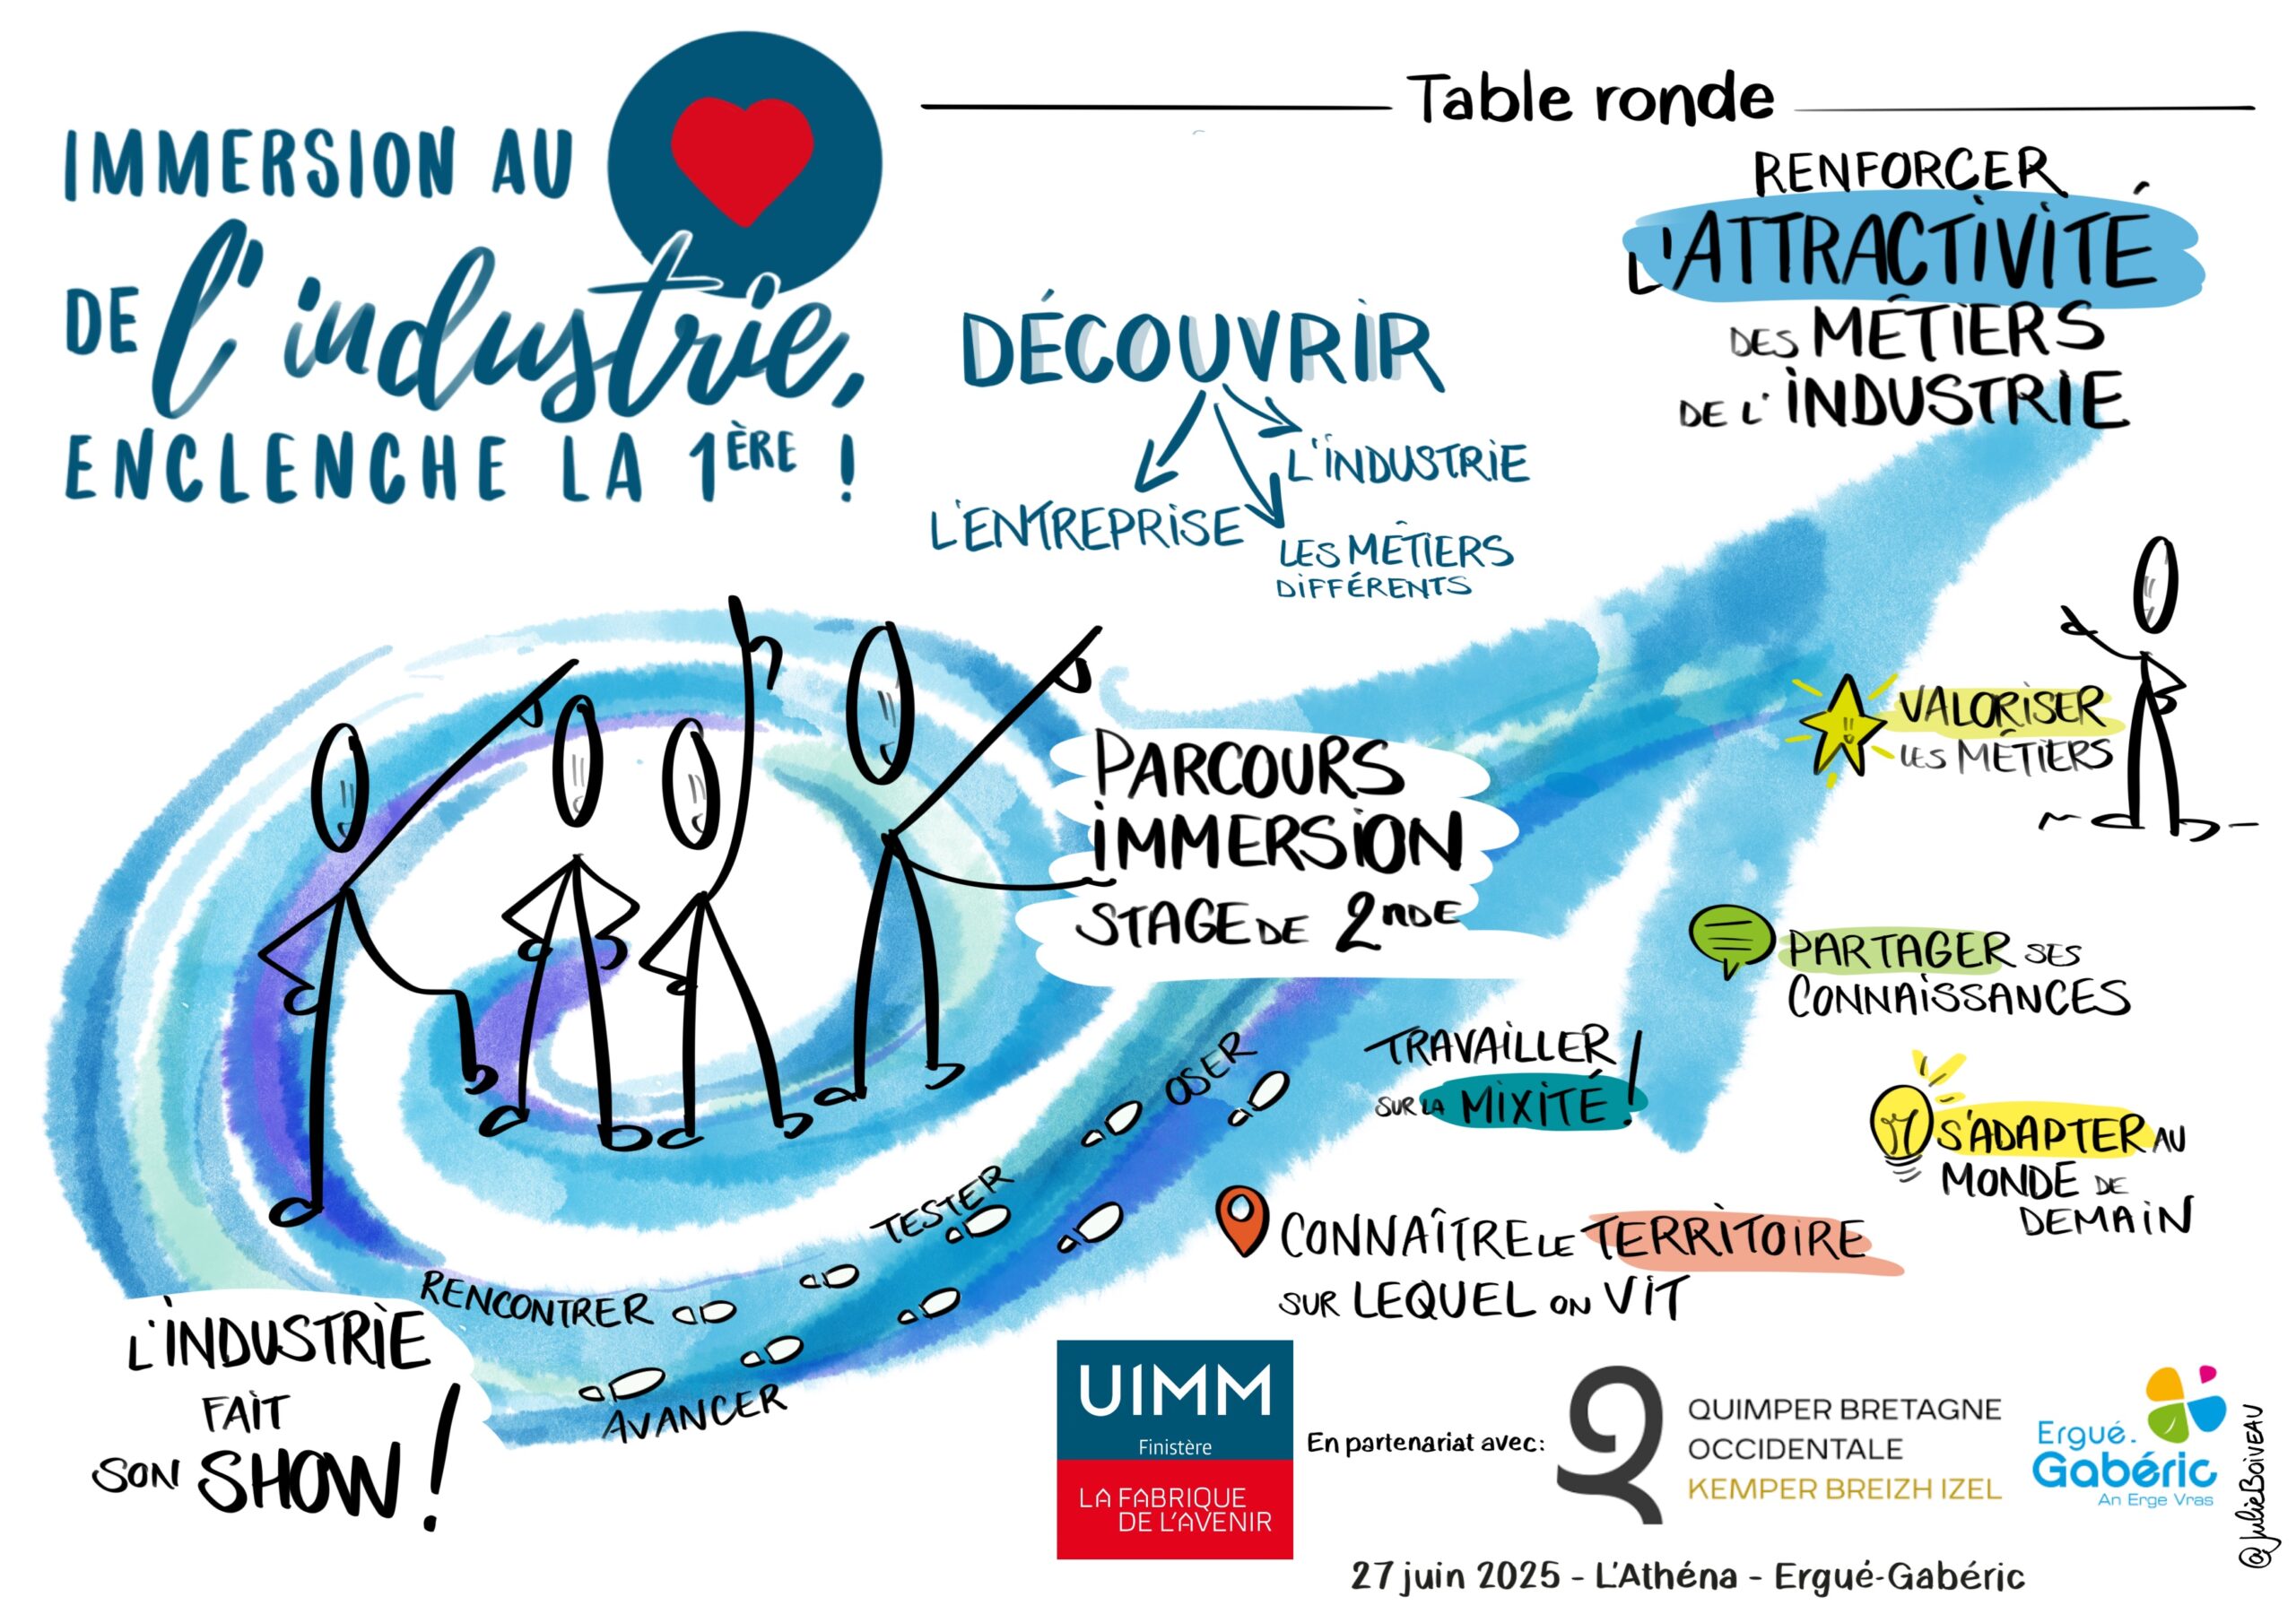 IMMERSION AU
DE l'industrie,
ENCLENCHE LA 1ÈRE !
Table ronde
RENFORCER
L'ATTRACTIVITÉ
DES MÉTIERS
DE L'INDUSTRIE
DÉCOUVRIR
L'INDUSTRIE
L'ENTREPRISE
LES MÉTIERS
DIFFÉRENTS
PARCOURS
IMMERSION
STAGE DE 2NDE
VALORISER
LES MÉTIERS
PARTAGER SES
CONNAISSANCES
TRAVAILLER
SUR LA MIXITÉ !
S'ADAPTER AU
MONDE DE
DEMAIN
CONNAÎTRE LE TERRITOIRE
SUR LEQUEL ON VIT
OSER
TESTER
RENCONTRER
AVANCER
L'INDUSTRIE
FAIT
SON SHOW !
UIMM
Finistère
LA FABRIQUE
DE L'AVENIR
En partenariat avec:
QUIMPER BRETAGNE
OCCIDENTALE
KEMPER BREIZH IZEL
Ergué-
Gabéric
An Erge Vras
@JulieBoiveau
27 juin 2025 - L'Athéna - Ergué-Gabéric